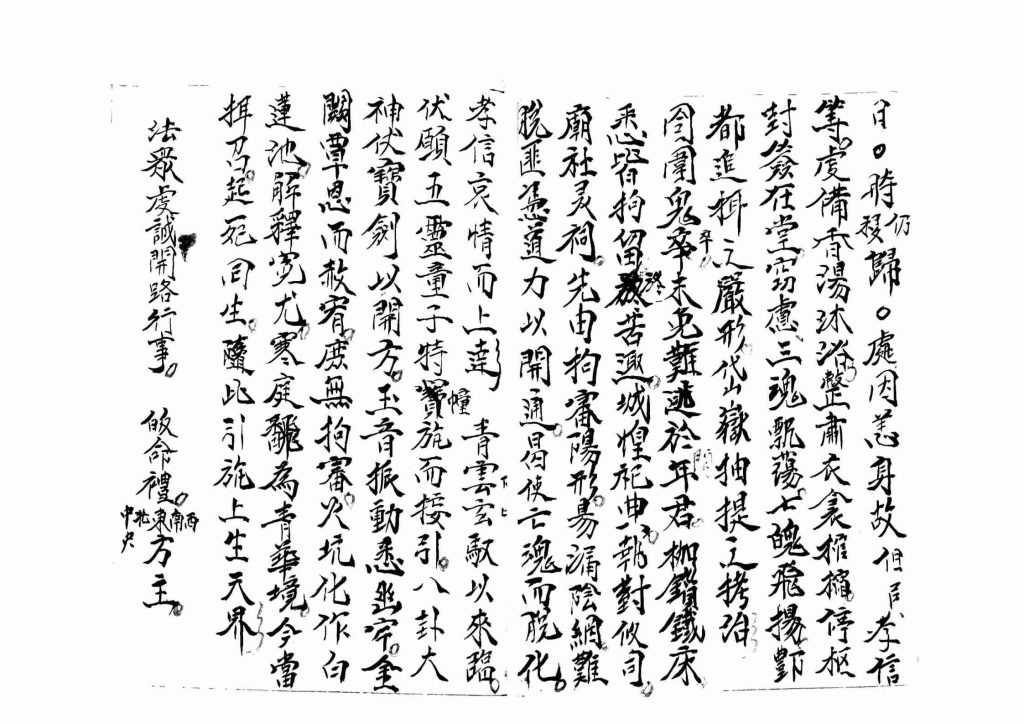 日。時移仍歸。處因恙身故但后孝信
等。虔備香湯沐浴整肅衣衾棺槨停柩
封簽在堂。窃慮三魂飄蕩。七魄飛揚酆
都追楫之嚴形岱山嶽抽提之拷治
囹圄鬼卒未免難逃於年君。枷鎖鐵床
悉皆拘留於苦遡。城惶祀典執對攸司
廟社灵祠。先由拘審陽形易漏陰網難
脱匪憑道力以開通。曷使亡魂而脫化。
孝信哀情而上達 青雲玄馭以來臨。
伏願五靈童子特寶幢施而接引。八卦大
神伏寶劍以開方。玉音振動悉幽牢。金
闕覃恩而赦宥。庶無拘審火坑化作白
蓮池。解釋冤尤寒庭翻為青華境。今當
拜召。起死回生。隨此引施上生天界
法眾虔誠開路行事。 皈命禮。
東南西北中央方主。